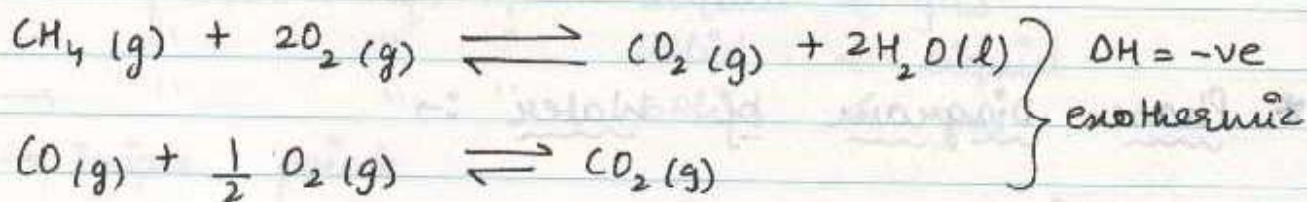 CH₄ (g) + 2O₂ (g) ⇌ CO₂ (g) + 2H₂O(l) } ΔH = -ve
exothermic
CO(g) + 1/2 O₂ (g) ⇌ CO₂ (g)